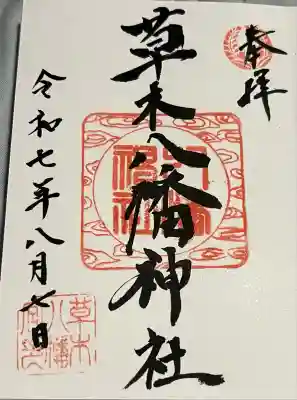 奉拝
草木八幡神社
令和七年八月七日
草木
八幡